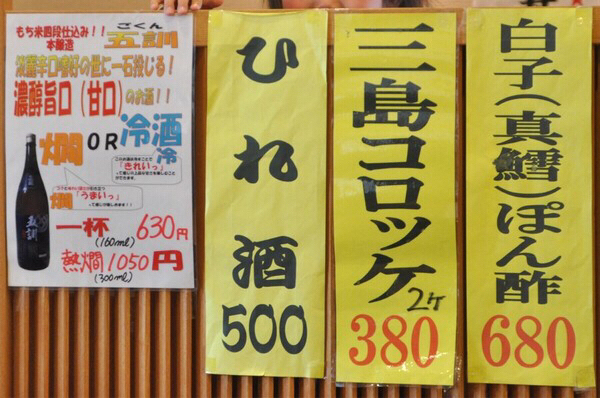 もち米四段仕込み！！
本醸造
ごくん
五訓
淡麗辛口嗜好の世に一石投じる！
濃醇旨口（甘口）のお酒！！
燗 OR 冷酒
冷
「きれいっ」
燗
「うまいっ」
五訓
一杯 630円
(160ml)
熱燗 1050円
(300ml)
ひれ酒
500
三島コロッケ
2ヶ
380
白子（真鱈）ぽん酢
680